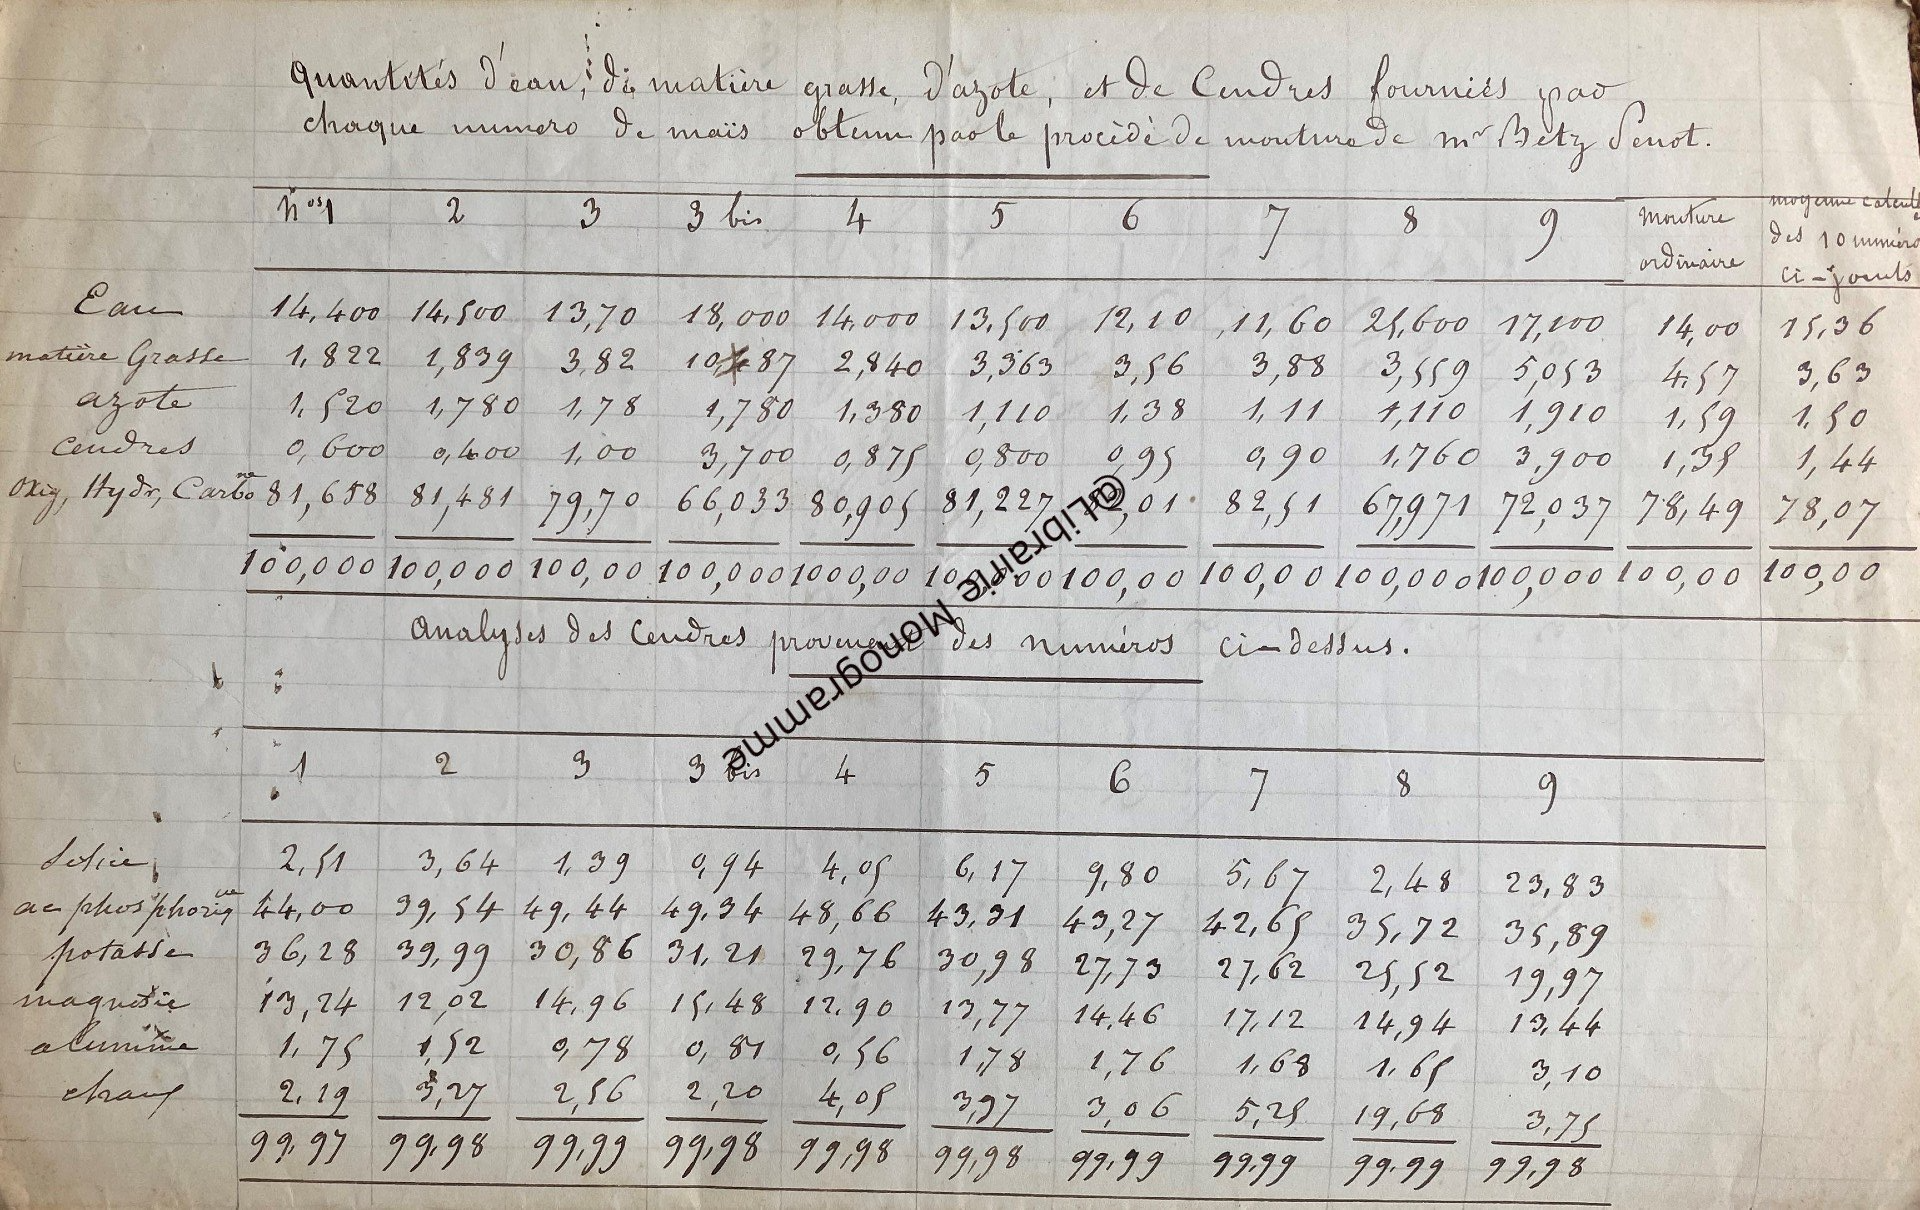 Quantités d'eau, de matière grasse, d'azote, et de Cendres fournies par
chaque numero de maïs obtenu par le procédé de mouture de mr Betz Penot.
nos 1 2 3 3 bis 4 5 6 7 8 9 mouture ordinaire moyenne calculée des 10 numéro ci-joints
Eau 14,400 14,500 13,70 18,000 14,000 13,500 12,10 11,60 25,600 17,100 14,00 15,36
matière Grasse 1,822 1,839 3,82 10,487 2,840 3,363 3,56 3,88 3,559 5,053 4,57 3,63
azote 1,520 1,780 1,78 1,780 1,380 1,110 1,38 1,11 1,110 1,910 1,59 1,50
cendres 0,600 0,400 1,00 3,700 0,875 0,800 0,95 0,90 1,760 3,900 1,35 1,44
Oxig, Hydr, Carbone 81,658 81,481 79,70 66,033 80,905 81,227 82,01 82,51 67,971 72,037 78,49 78,07
100,000 100,000 100,00 100,000 1000,00 100,00 100,00 100,00 100,000 100,000 100,00 100,00
Analyses des Cendres provenant des numéros ci-dessus.
1 2 3 3 bis 4 5 6 7 8 9
Silice 2,51 3,64 1,39 0,94 4,05 6,17 9,80 5,67 2,48 23,83
ac phosphorique 44,00 39,54 49,44 49,34 48,66 43,31 43,27 42,65 35,72 35,89
potasse 36,28 39,99 30,86 31,21 29,76 30,98 27,73 27,62 25,52 19,97
magnesie 13,24 12,02 14,96 15,48 12,90 13,77 14,46 17,12 14,94 13,44
alumine 1,75 1,52 0,78 0,81 0,56 1,78 1,76 1,68 1,65 3,10
chaux 2,19 3,27 2,56 2,20 4,05 3,97 3,06 5,25 19,68 3,75
99,97 99,98 99,99 99,98 99,98 99,98 99,99 99,99 99,99 99,98
@Librairie Monogramme